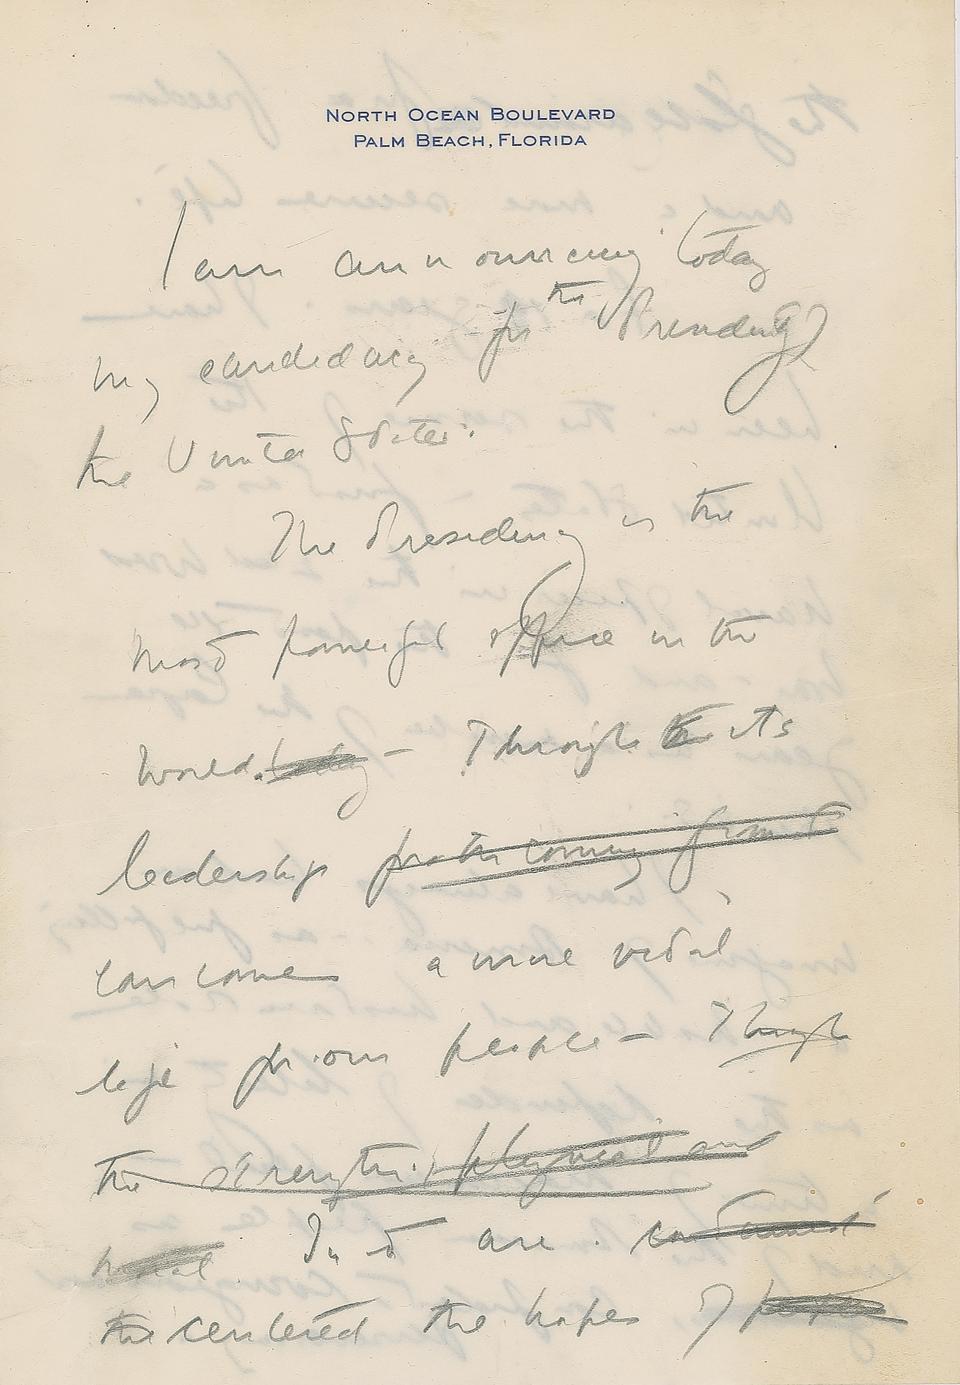 NORTH OCEAN BOULEVARD
PALM BEACH, FLORIDA
I am announcing today
my candidacy for the Presidency of
the United States.
The Presidency is the
most powerful office in the
world. today — Through its
leadership for the coming
can come a more vital
life for our people — Through
the strength, physical and
In it are
the centered the hopes of